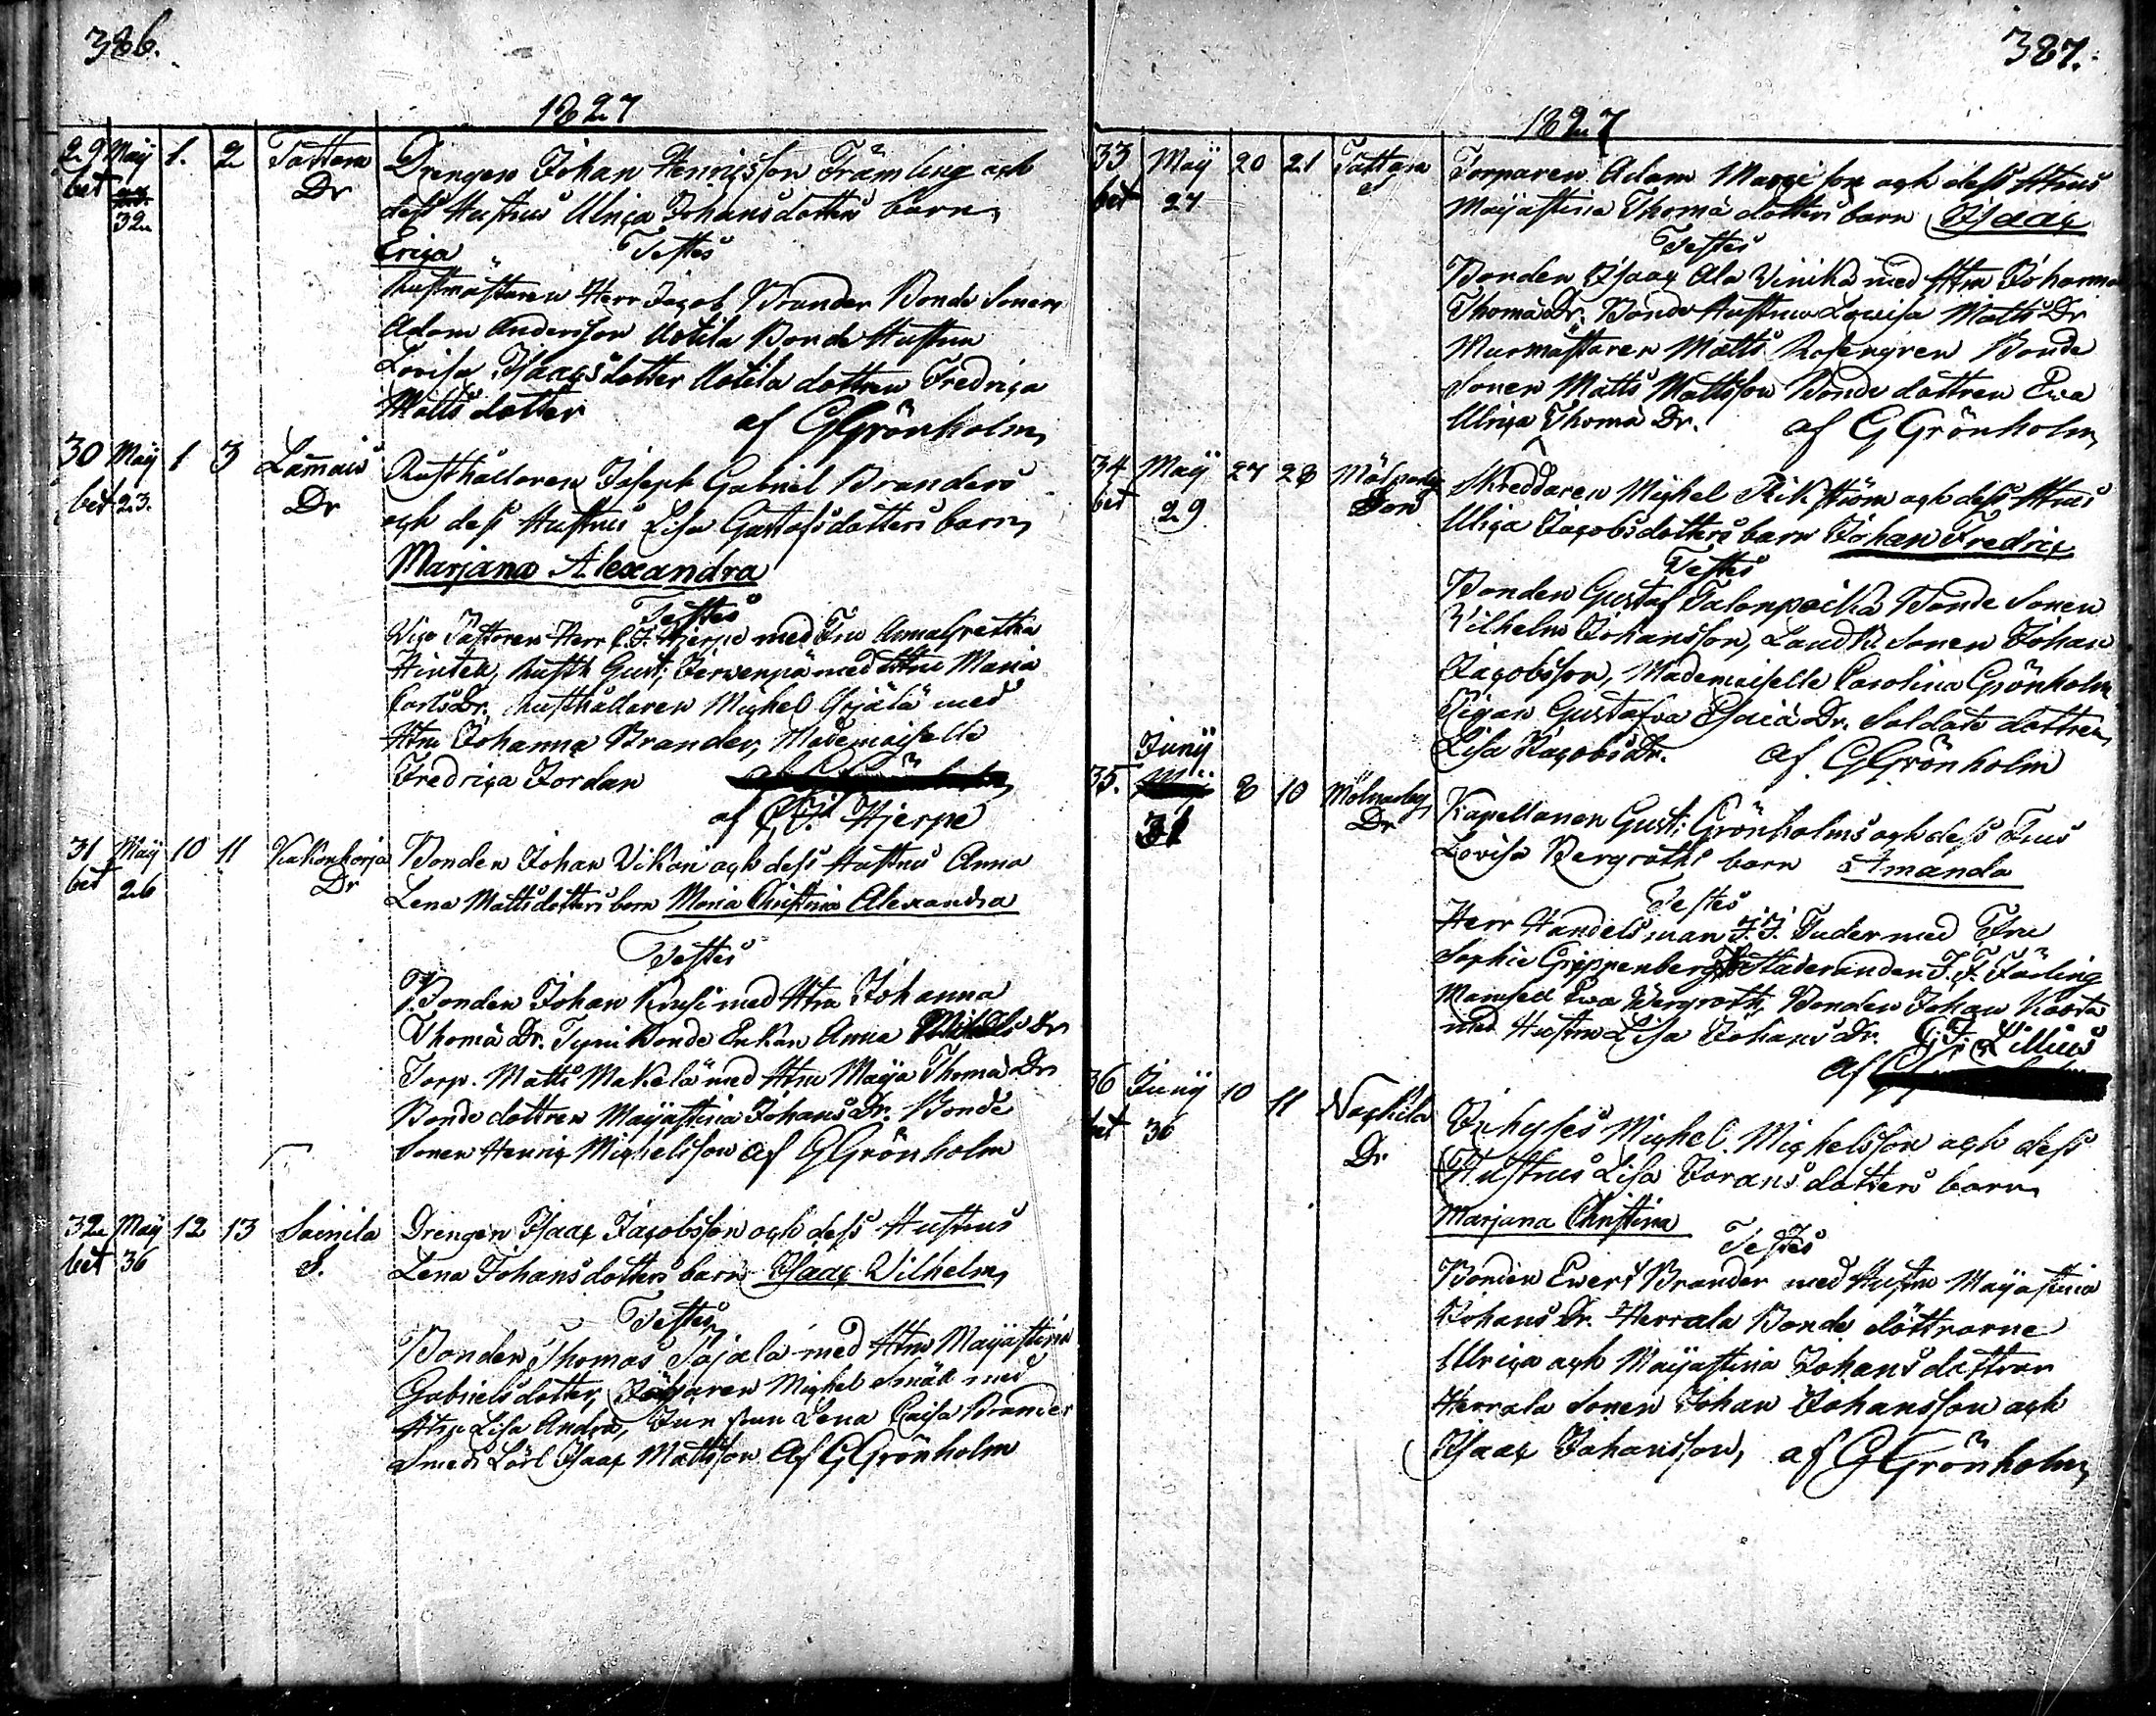 386.
1827
29 Maÿ 1. 2 Tattara Drengen Johan Henricsson Främling och
bet 32 Dr dess Hustrus Ulrica Johansdotters barn
Erica Testes
Rustmästaren Herr Jacob Brander Bonde Sonen
Adam Andersson Uotila Bonde Hustrun
Lovisa Isaacsdotter Uotila dottren Fredrica
Matts dotter af GGrönholm
30 Maÿ 1 3 Lam̄ais Rusthållaren Joseph Gabriel Branders
bet 23. Dr och dess Hustrus Lisa Gustafsdotters barn
Marjana Alexandra
Testes
Vice Pastoren Herr C. J. Hjerpe med Fru Annagretha
Rusth Gust: Jervenpä med Hstru Maria
Carls Dr, Rusthållaren Michel med
Hstru Johanna Brander, Mademoiselle
Fredrica Jordan
af C: J: Hjerpe
31 Maÿ 10 11 Kakonkorja Bonden Johan Vikari och dess Hustrus Anna
bet 26 Dr Lena Mattsdotters barn Maria Christina Alexandra
Testes
Bonden Johan Krusi med Hstru Johanna
Thoma Dr. Tyni Bonde Enkan Anna Dr
Torp. Matts Makelä med Hstru Maÿa Thoma Dr
Bonde dottren Maÿastina Johans Dr. Bonde
Sonen Henric Michelsson af GGrönholm
32 Maÿ 12 13 Soinila Drengen Isaac Jacobsson och dess Hustrus
bet 36 S. Lena Johansdotters barn Isaac Vilhelm
Testes
Bonden Thomas Pajala med Hstru Maÿastina
Gabrielsdotter, Michel Småll med
Hstru Lisa Andra, Jungfrun Lena Caisa Brander
Smeds Lärl Isaac Mattsson af GGrönholm
387.
1827
33 Maÿ 20 21 Tattara Torparen Adam Marcisson och dess Hstrus
bet 27 Maÿastina Thoma dotters barn Isaac
Testes
Bonden Isaac Ala Vinika med Hstru Johanna
Thoma Dr. Bonde Hustrun Lovisa Matts Dr
Murmästaren Matts Rosengren Bonde
Sonen Matts Mattsson Bonde dottren Eva
Ulrica Thoma Dr. af GGrönholm
34 Maÿ 27 28 Mölnarby Skreddaren Michel Rikström och dess Hstrus
bet 29 Son Ulrica Jacobsdotters barn Johan Fredric
Testes
Bonden Gustaf Talonpoika Bonde Sonen
Vilhelm Johansson, Sonen Johan
Jacobsson, Mademoiselle Carolina Grönholm
Pigan Gustafva Esaia Dr. Soldats dottren
Lisa Jacobs Dr. af GGrönholm
Junÿ
35. 8 10 Mölnarby Kapellanen Gust: Grönholms och dess Frus
31 Dr Lovisa Bergroths barn Amanda
Testes
Herr Handelsman J. J. Tuder med Fru
Sophie Grippenberg, Studeranden J. F. Färling
Mamsell Eva Bergroth, Bonden Johan
med Hustru Lisa Johans Dr. C: J: Lillius
af
36 Junÿ 10 11 Nackila Inhyses Michel Michelsson och dess
bet 36 Dr Hustrus Lisa Jorans dotters barn
Marjana Christina
Testes
Bonden Evert Brander med Hustru Maÿastina
Johans Dr. Herrala Bonde döttrarne
Ulrica och Maÿastina Johans döttrar
Herrala Sonen Johan Johansson och
Isaac Johansson, af GGrönholm